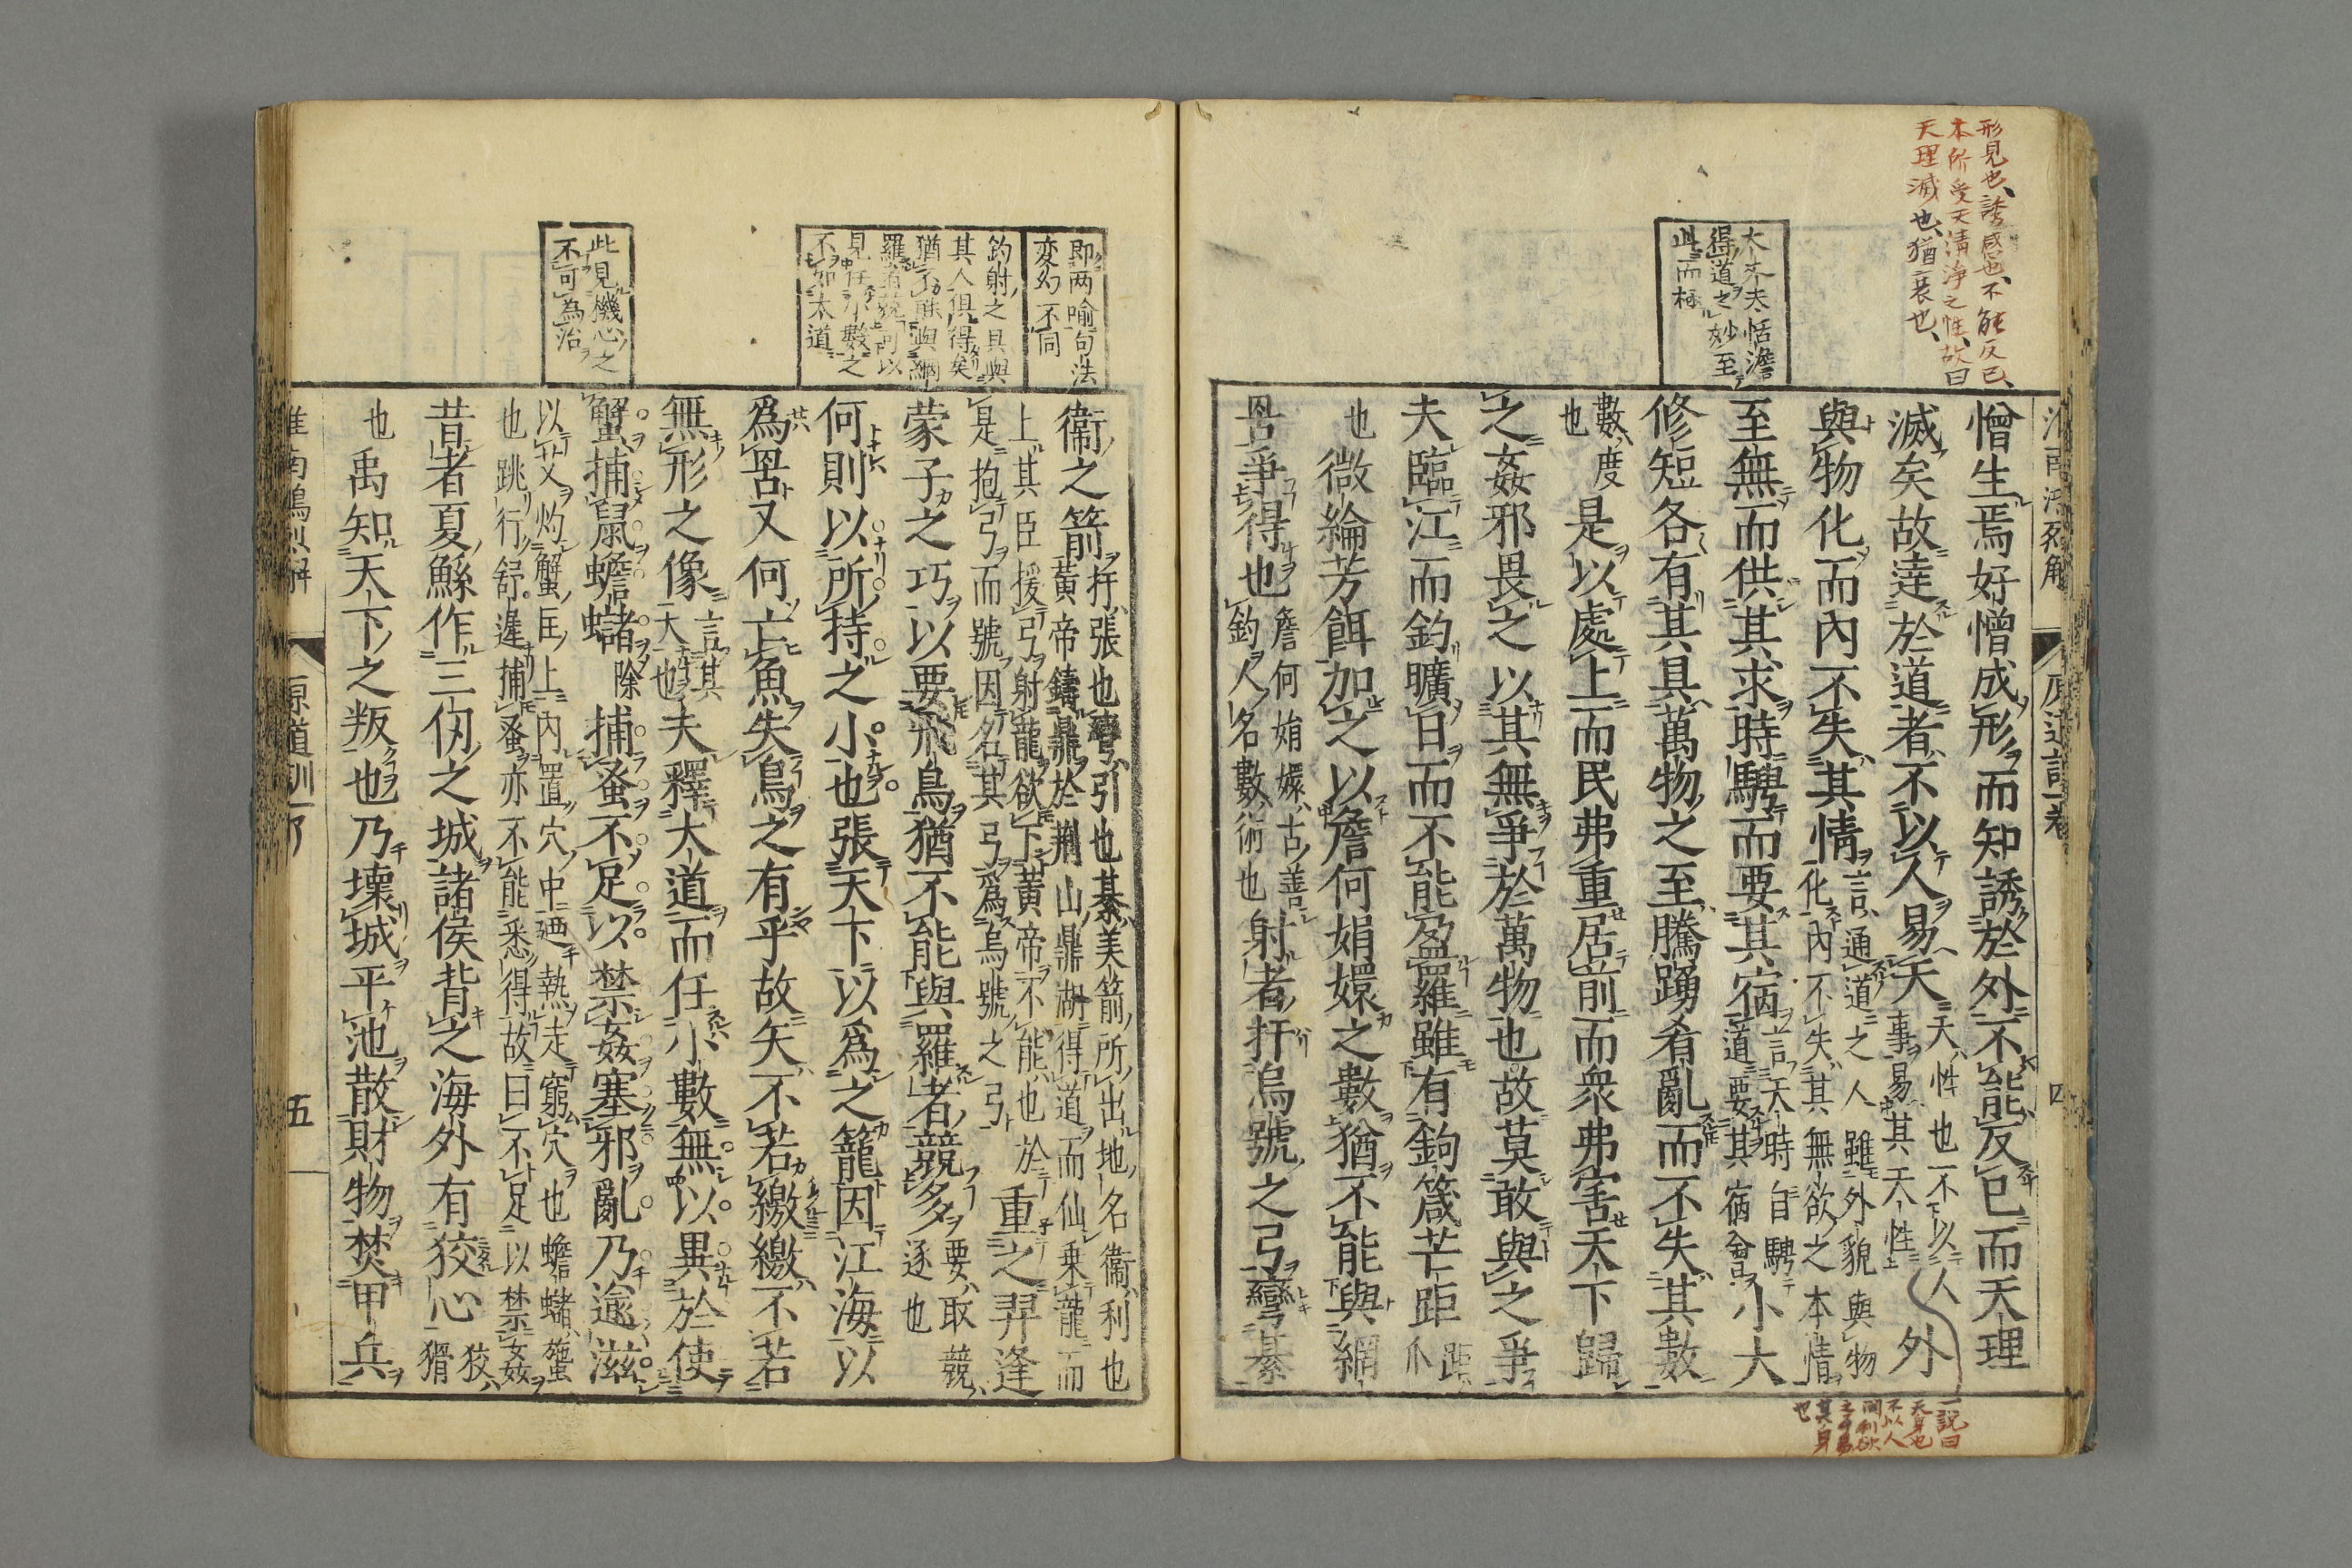 形見也、誘感也、不能反已、
本所受天清浄之性、故曰
天理滅也、猶衰也、
大丈夫恬澹
得道之妙至
此而極
憎生焉好憎成形而知誘於外不能反已而天理
滅矣故達於道者不以人易天天性也不以人
事易其天性外
與物化而內不失其情言通道之人雖外貌與物
化內不失其無欲之本情
至無而供其求時騁而要其宿言天時自騁
道要其宿會小大
修短各有其具萬物之至騰踴肴亂而不失其數
數度
也是以處上而民弗重居前而衆弗害天下歸
之姦邪畏之以其無爭於萬物也故莫敢與之爭
夫臨江而釣曠日而不能盈羅雖有鉤箴芒距距
爪
也微綸芳餌加之以詹何娟嬛之數猶不能與網
罟爭得也詹何娟嬛古善
釣人名數術也射者扜烏號之弓彎棊
一說曰
天身也
不以人
間利欲
之事易
其身
也
即両喻句法
変幻不同
釣射之具與
其人俱得矣
猶不能與網
羅者競可以
見任小數之
不如大道
此見機心之
不可為治
衞之箭扜張也彎引也棊美箭所出地名衞利也
黃帝鑄鼎於荆山鼎湖得道而仙乗龍而
上其臣援弓射龍欲下黃帝不能也於
是抱弓而號因名其弓爲烏號之弓重之羿逢
蒙子之巧以要飛鳥猶不能與羅者競多要取競
逐也
何則以所持之小也張天下以爲之籠因江海以
爲罟又何亡魚失鳥之有乎故矢不若繳繳不若
無形之像言其
大也夫釋大道而任小數無以異於使
蟹捕鼠蟾蠩捕蚤不足以禁姦塞邪亂乃逾滋
以艾灼蟹匡上內置穴中廼熱走窮穴也蟾蠩蟹
也跳行舒遲捕蚤亦不能悉得故曰不足以禁姦
昔者夏鯀作三仞之城諸侯背之海外有狡心狡
猾
也禹知天下之叛也乃壊城平池散財物焚甲兵
原道訓
五